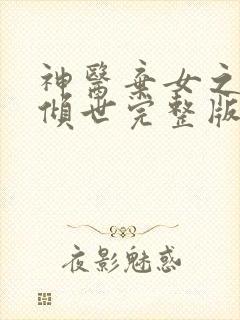 神醫棄女之
傾世完整版
夜影魅惑